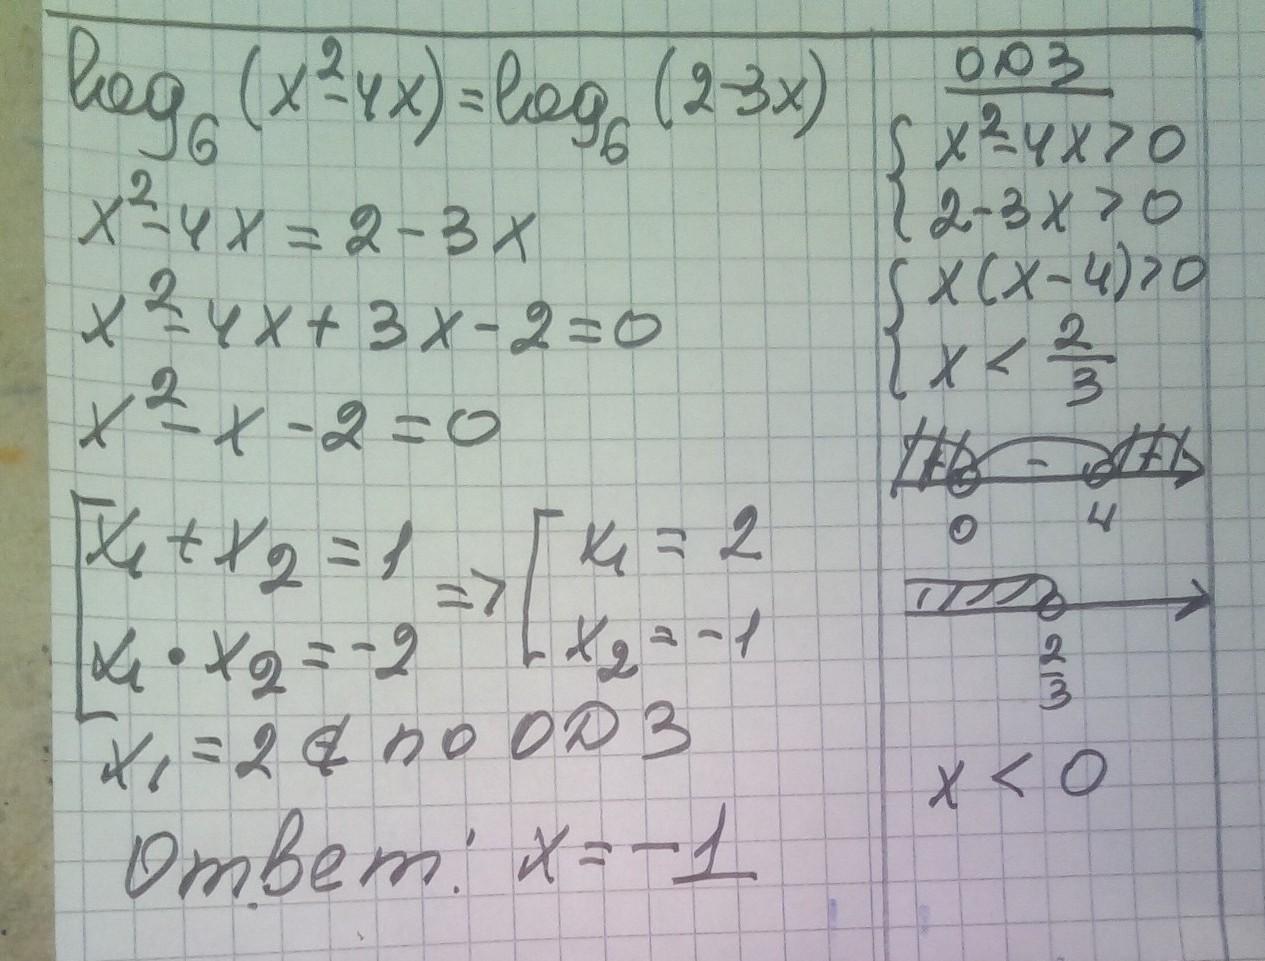 log₆(x²-4x)=log₆(2-3x)
x²-4x=2-3x
x²-4x+3x-2=0
x²-x-2=0
[x₁+x₂=1 => [x₁=2
x₁•x₂=-2 x₂=-1
x₁=2 ∉ по ОДЗ
Ответ: x=-1
ОДЗ
{x²-4x>0
2-3x>0
{x(x-4)>0
x<2/3
-
0 4
2/3
x<0